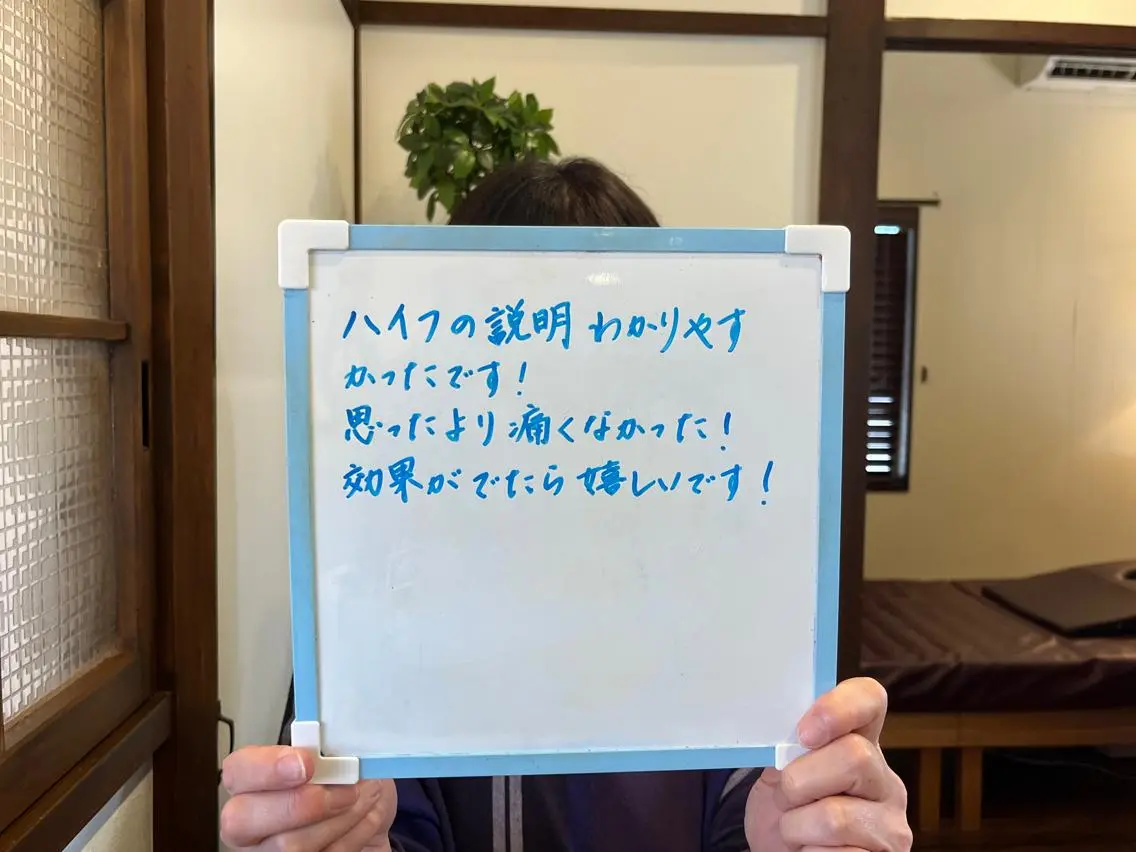 ハイフの説明わかりやす
かったです!
思ったより痛くなかった!
効果がでたら嬉しいです!